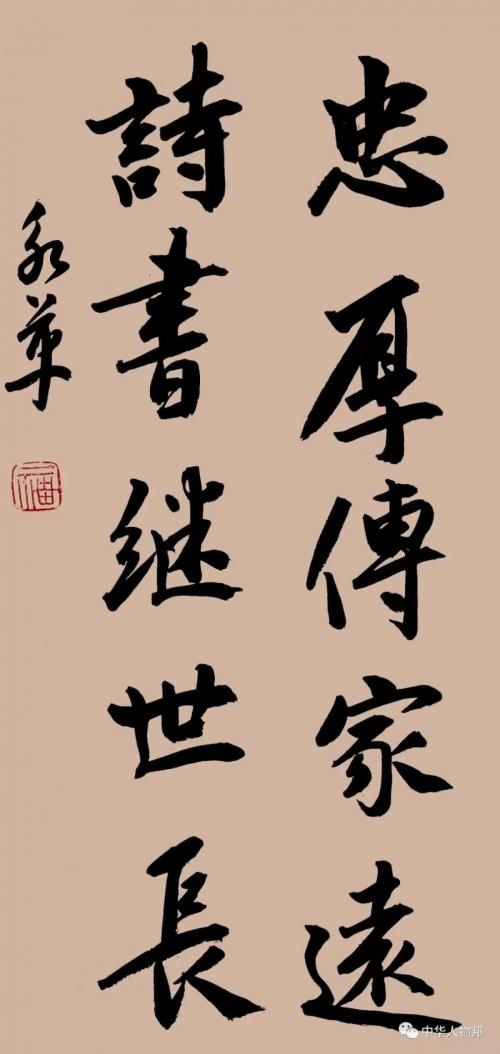 忠厚傳家遠
詩書继世長
永革
中华人物邦